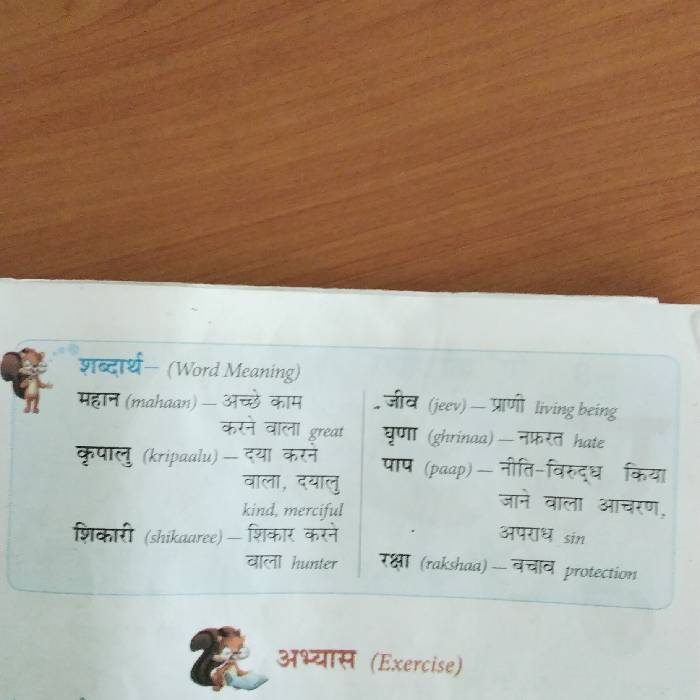 शब्दार्थ– (Word Meaning)
महान (mahaan) — अच्छे काम
करने वाला great
कृपालु (kripaalu) — दया करने
वाला, दयालु
kind, merciful
शिकारी (shikaaree) — शिकार करने
वाला hunter
जीव (jeev) — प्राणी living being
घृणा (ghrinaa) — नफ़रत hate
पाप (paap) — नीति-विरुद्ध किया
जाने वाला आचरण,
अपराध sin
रक्षा (rakshaa) — बचाव protection
अभ्यास (Exercise)